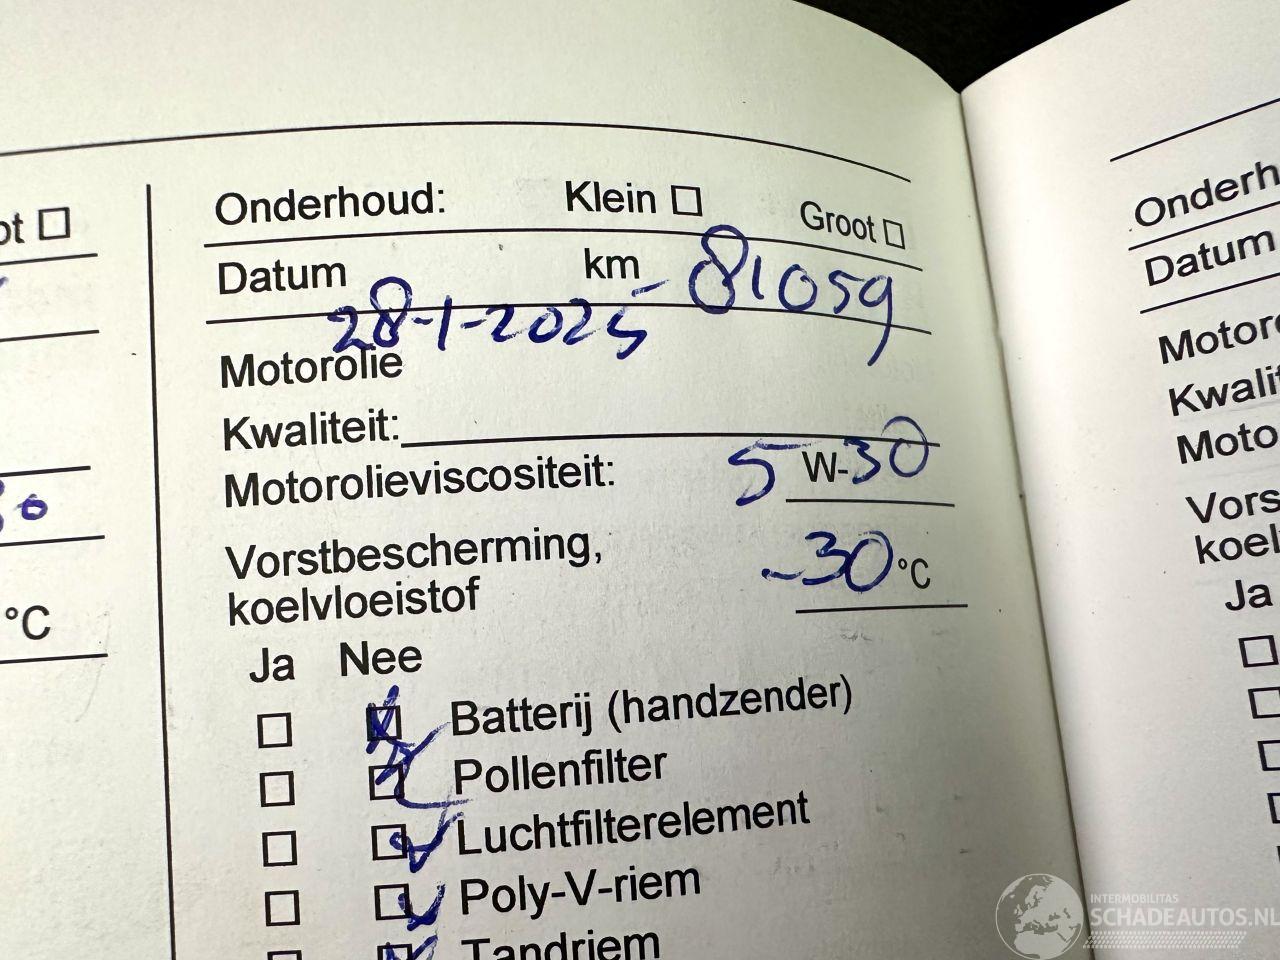 ot
30
°C
Onderhoud: Klein Groot
Datum km
28-1-2025 - 81059
Motorolie
Kwaliteit:
Motorolieviscositeit: 5 W-30
Vorstbescherming,
koelvloeistof -30 °C
Ja Nee
Batterij (handzender)
Pollenfilter
Luchtfilterelement
Poly-V-riem
Tandriem
Onderh
Datum
Motoro
Kwalit
Moto
Vors
koel
Ja
INTERMOBILITAS
SCHADEAUTOS.NL